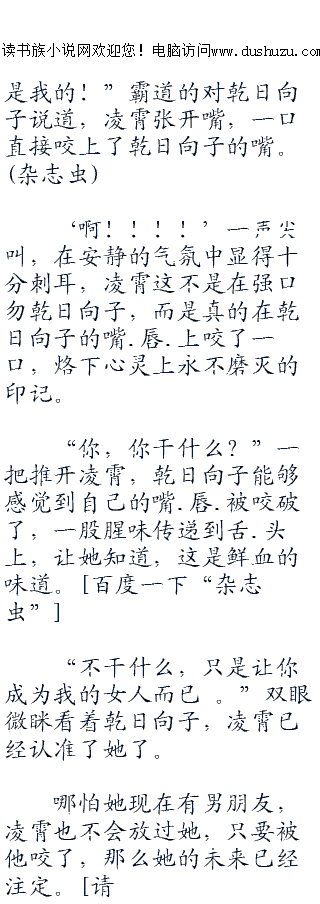 读书族小说网欢迎您！电脑访问www.dushuzu.com
是我的！”霸道的对乾日向
子说道，凌霄张开嘴，一口
直接咬上了乾日向子的嘴。
(杂志虫)
‘啊！！！！’一声尖
叫，在安静的气氛中显得十
分刺耳，凌霄这不是在强口
勿乾日向子，而是真的在乾
日向子的嘴.唇.上咬了一
口，烙下心灵上永不磨灭的
印记。
“你，你干什么？”一
把推开凌霄，乾日向子能够
感觉到自己的嘴.唇.被咬破
了，一股腥味传递到舌.头
上，让她知道，这是鲜血的
味道。[百度一下“杂志
虫”]
“不干什么，只是让你
成为我的女人而已 。”双眼
微眯看着乾日向子，凌霄已
经认准了她了。
哪怕她现在有男朋友，
凌霄也不会放过她，只要被
他咬了，那么她的未来已经
注定。[请